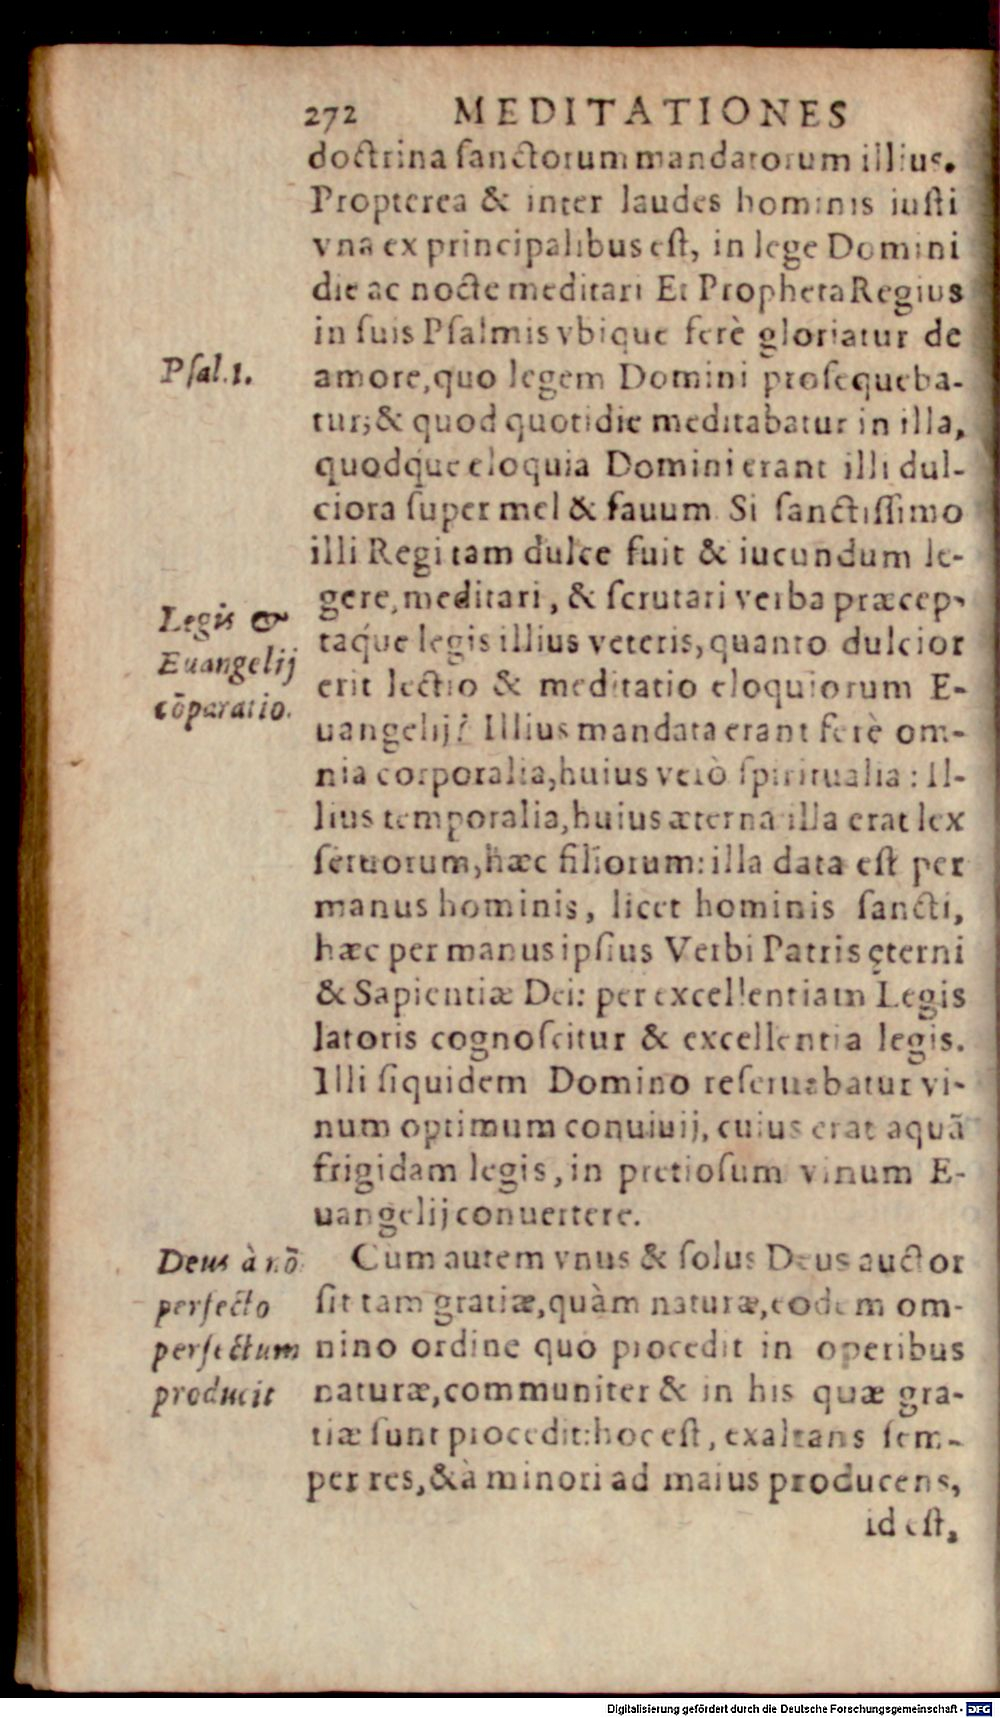 272 MEDITATIONES
doctrina ſanctorum mandatorum illius.
Propterea & inter laudes hominis iuſti
vna ex principalibus eſt, in lege Domini
die ac nocte meditari Et Propheta Regius
in ſuis Pſalmis vbique ferè gloriatur de
Pſal. 1.
amore, quo legem Domini proſequeba-
tur; & quod quotidie meditabatur in illa,
quodque eloquia Domini erant illi dul-
ciora ſuper mel & fauum Si ſanctiſſimo
illi Regi tam dulce fuit & iucundum le-
gere, meditari, & ſcrutari verba præcep-
Legis &
Euangelij
cōparatio.
taq́ue legis illius veteris, quanto dulcior
erit lectio & meditatio eloquiorum E-
uangelij? Illius mandata erant ferè om-
nia corporalia, huius verò ſpiritualia: Il-
lius temporalia, huius æterna illa erat lex
ſeruorum, hæc filiorum: illa data eſt per
manus hominis, licet hominis ſancti,
hæc per manus ipſius Verbi Patris ęterni
& Sapientiæ Dei: per excellentiam Legis
latoris cognoſcitur & excellentia legis.
Illi ſiquidem Domino reſeruabatur vi-
num optimum conuiuij, cuius erat aquā
frigidam legis, in pretioſum vinum E-
uangelij conuertere.
Deus à nō
perfecto
perfectum
producit
Cùm autem vnus & ſolus Deus auctor
ſit tam gratiæ, quàm naturæ, eodem om-
nino ordine quo procedit in operibus
naturæ, communiter & in his quæ gra-
tiæ ſunt procedit: hoc eſt, exaltans ſem-
per res, & à minori ad maius producens,
id eſt,
Digitalisierung gefördert durch die Deutsche Forschungsgemeinschaft - DFG